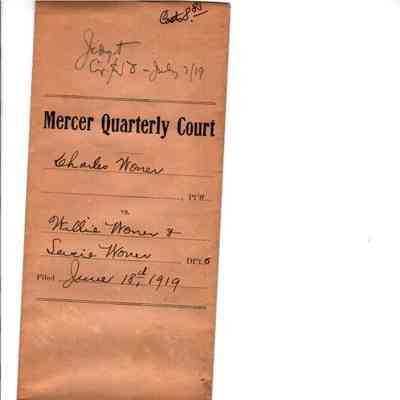 Cost 8.80
Judgt
July 7/19
Mercer Quarterly Court
Charles Woner
, Pl'ff.
vs.
Willie Woner &
Susie Woner DFt.s
Filed June 18rd, 1919